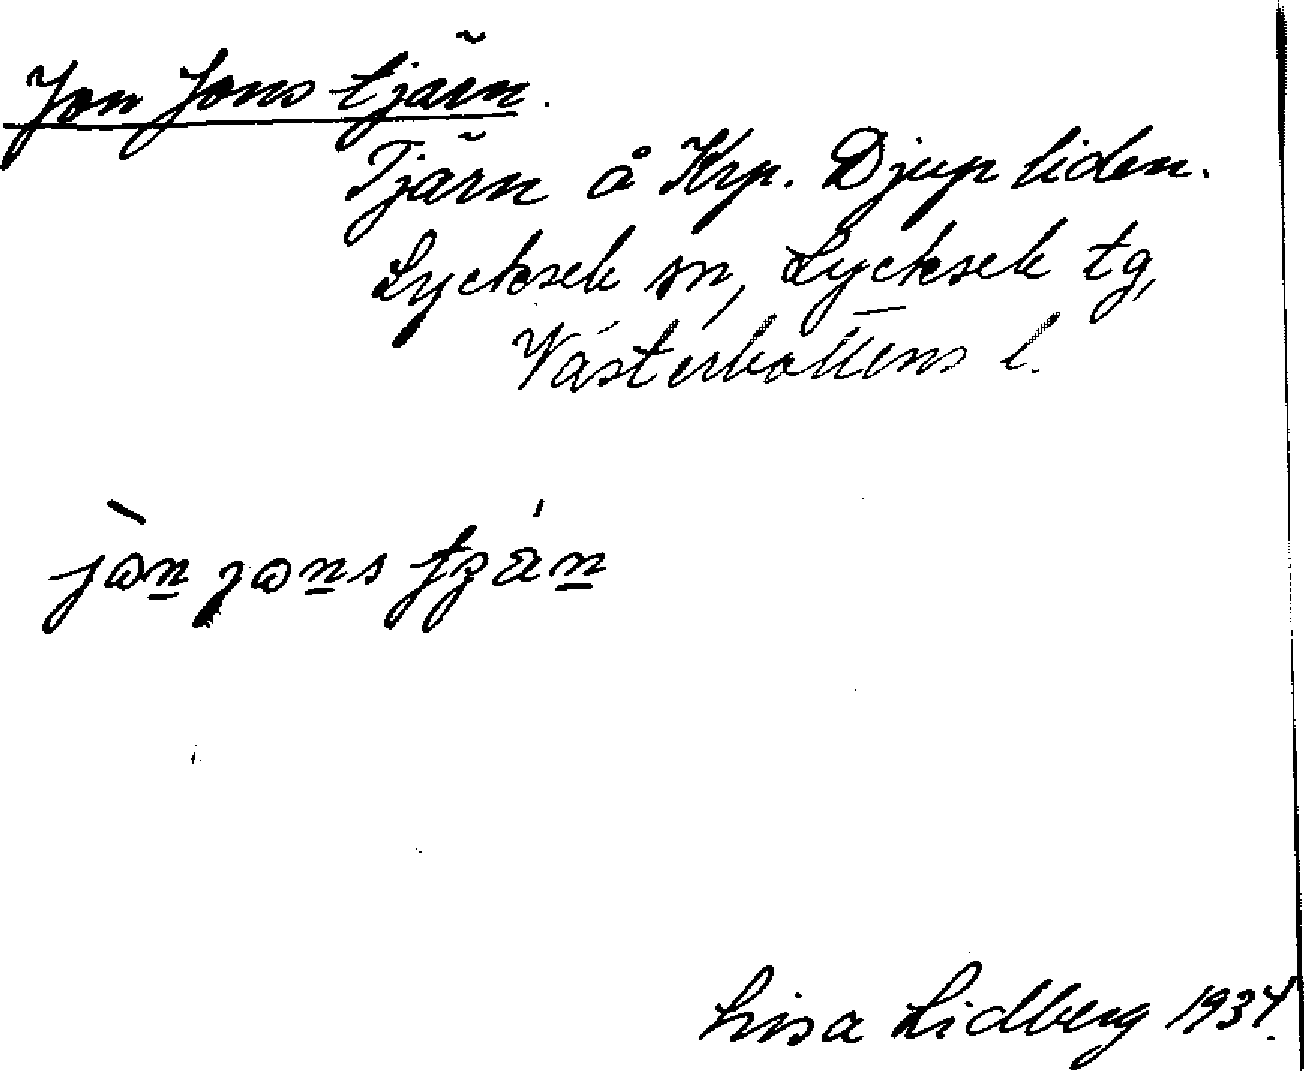 Jon Jons tjärn.
Tjärn å Krp. Djupliden.
Lycksele sn, Lycksele tg,
Västerbottens l.
jòn jons tján
Lisa Lidberg 1934.